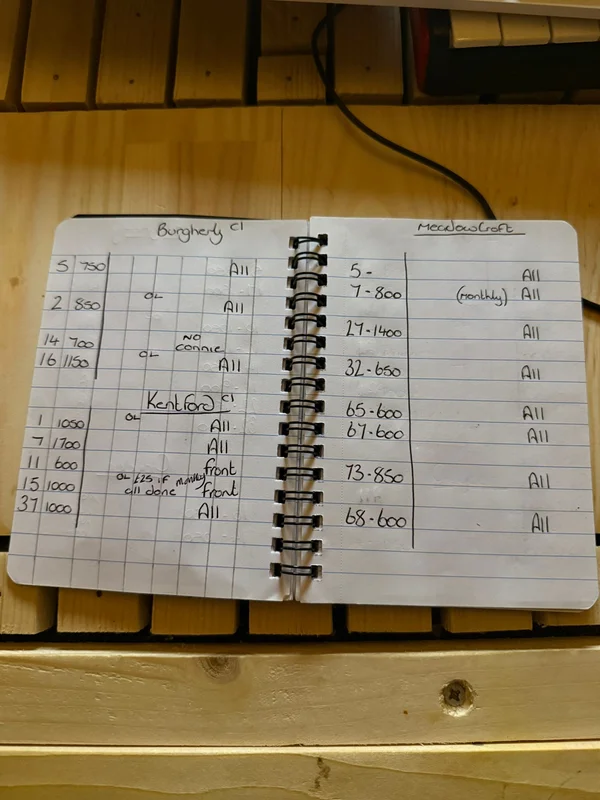 Burgherly Cl
5 750 All
OL
2 850 All
14 700 NO connie
OL
16 1150 All
Kentford Cl
OL
1 1050 All
7 1700 All
11 600 front
15 1000 OL £25 if monthly all done front
37 1000 All
Meadowcroft
5 - All
7-800 (Monthly) All
27-1400 All
32-650 All
65-600 All
67-600 All
73-850 All
68-600 All